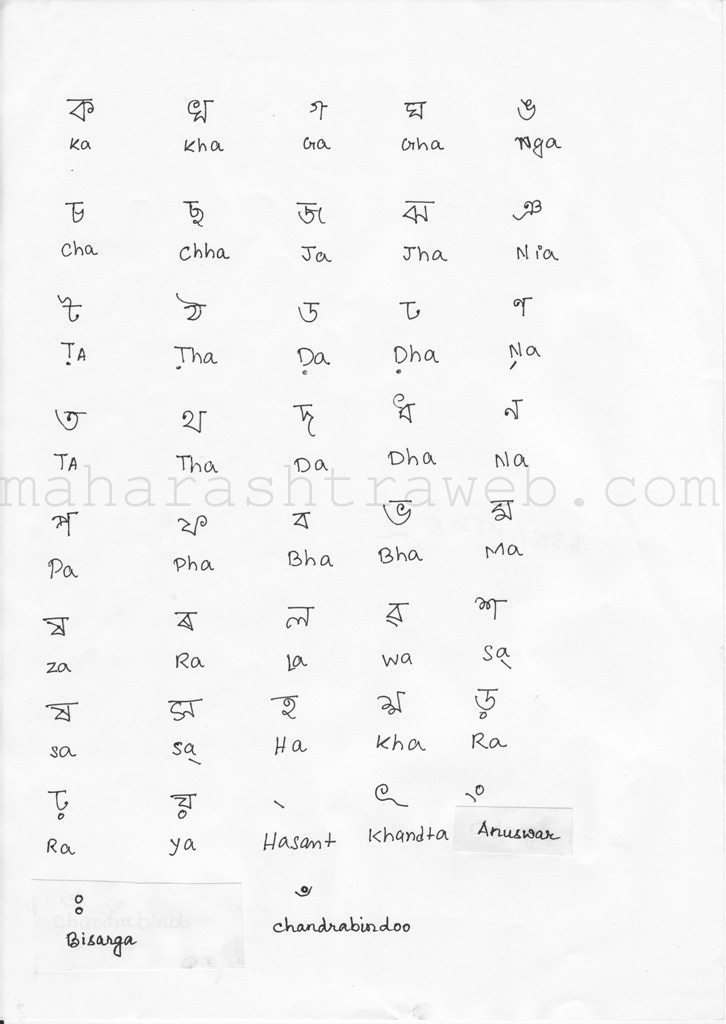 ক খ গ ঘ ঙ
Ka Kha Ga Gha Nga
চ ছ জ ঝ ঞ
Cha Chha Ja Jha Nia
ট ঠ ড ঢ ণ
ṬA Ṭha Ḍa Ḍha Ṇa
ত থ দ ধ ন
TA Tha Da Dha Na
maharashtraweb.com
প ফ ব ভ ম
Pa Pha Bha Bha Ma
য ৰ ল ৱ শ
za Ra La wa Sa
ষ স হ ক্ষ ড়
sa sa Ha Kha Ra
ঢ় য় ্ ৎ ং
Ra ya Hasant Khandta Anuswar
ঃ ঁ
Bisarga chandrabindoo